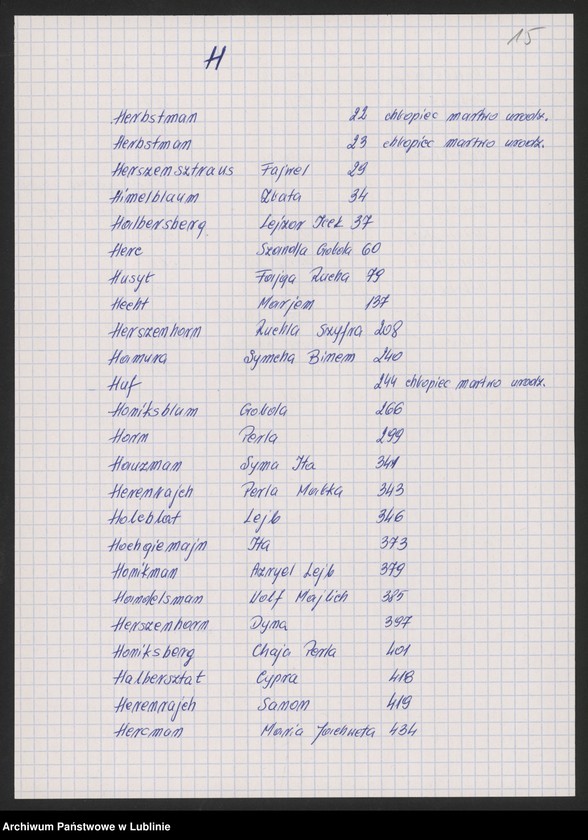 15
H
Herbstman 22 chłopiec martwo urodz.
Herbstman 23 chłopiec martwo urodz.
Herszensztraus Fajwel 29
Himelblaum Złata 34
Halbersberg Lejzor Icek 37
Herc Szandla Gołda 60
Husyt Fajga Ruchla 79
Hecht Marjem 137
Herszenhorn Ruchla Szyfra 208
Hamura Symcha Binem 240
Huf 244 chłopiec martwo urodz.
Honiksblum Gołda 266
Horn Perla 299
Hauzman Syma Ita 341
Herenrajch Perla Małka 343
Holeblat Lejb 346
Hochgiemajn Ita 373
Honikman Azryel Lejb 379
Handelsman Wolf Majlich 385
Herszenhorn Dyna 397
Honiksberg Chaja Perla 401
Halbersztat Cypra 418
Herenrajch Sanon 419
Hercman Maria 434
Archiwum Państwowe w Lublinie